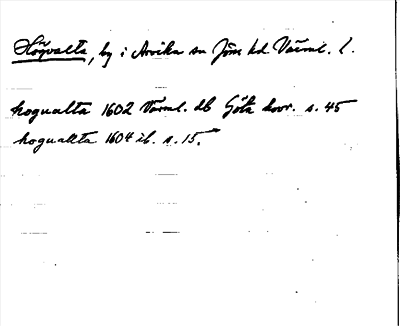 Högvalta, by i Arvika sn Jösse hd Värml. l.
hogualta 1602 Värml. db Göta hovr. s. 45
hogualta 1604 ib. s. 15.